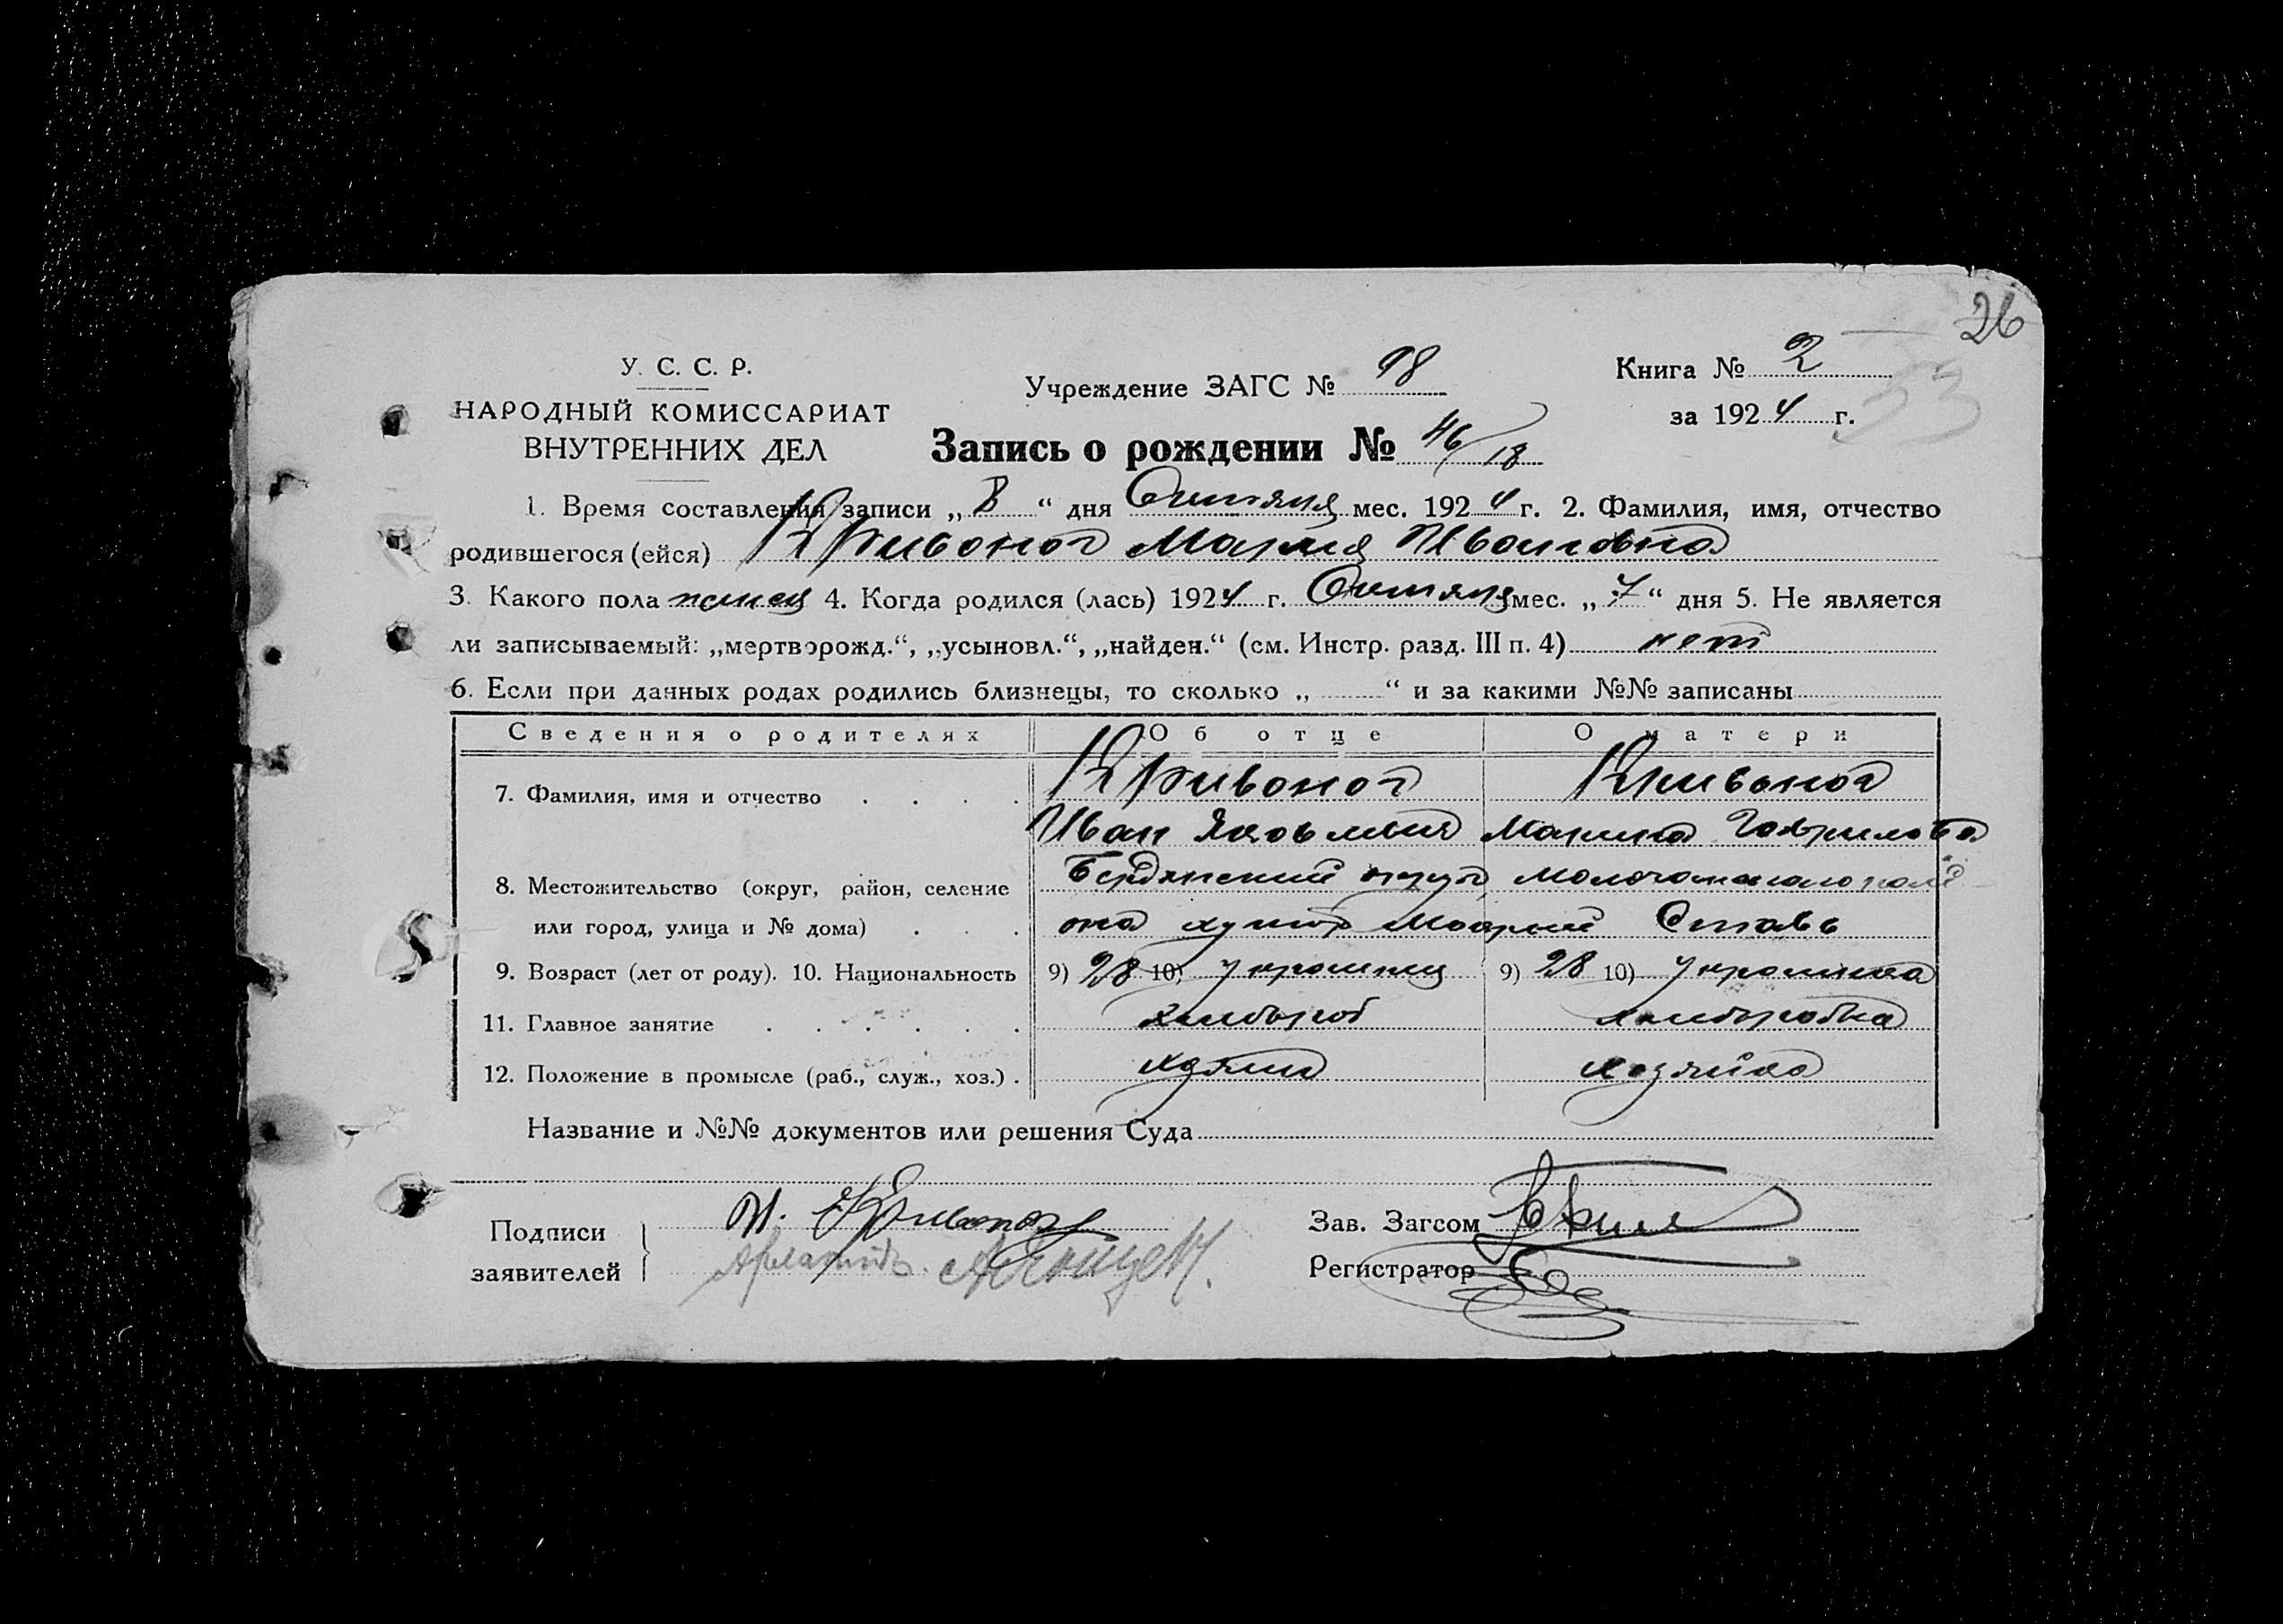 26
У. С. С. Р.
НАРОДНЫЙ КОМИССАРИАТ
ВНУТРЕННИХ ДЕЛ
Учреждение ЗАГС № 98
Книга № 2
53
за 1924 г.
Запись о рождении № 46/18
1. Время составления записи „8“ дня Октября мес. 1924 г. 2. Фамилия, имя, отчество
родившегося (ейся) Кривоног Мария Ивановна
3. Какого пола женск 4. Когда родился (лась) 1924 г. Октября мес. „7“ дня 5. Не является
ли записываемый: „мертворожд.“, „усыновл.“, „найден.“ (см. Инстр. разд. III п. 4) нет
6. Если при данных родах родились близнецы, то сколько „ “ и за какими №№ записаны
Сведения о родителях Об отце О матери
7. Фамилия, имя и отчество . . . . Кривоног Кривоног
Иван Яковлевич Марина Гаврилова
8. Местожительство (округ, район, селение Бердянский округ,
или город, улица и № дома) . . . она хутор Мокрый Ставъ
9. Возраст (лет от роду). 10. Национальность 9) 28 10) украинец 9) 28 10) украинка
11. Главное занятие . . . . . . хлебороб хлеборобка
12. Положение в промысле (раб., служ., хоз.) . хозяин хозяйка
Название и №№ документов или решения Суда
Подписи
заявителей
И. Кривоног
Зав. Загсом
Регистратор